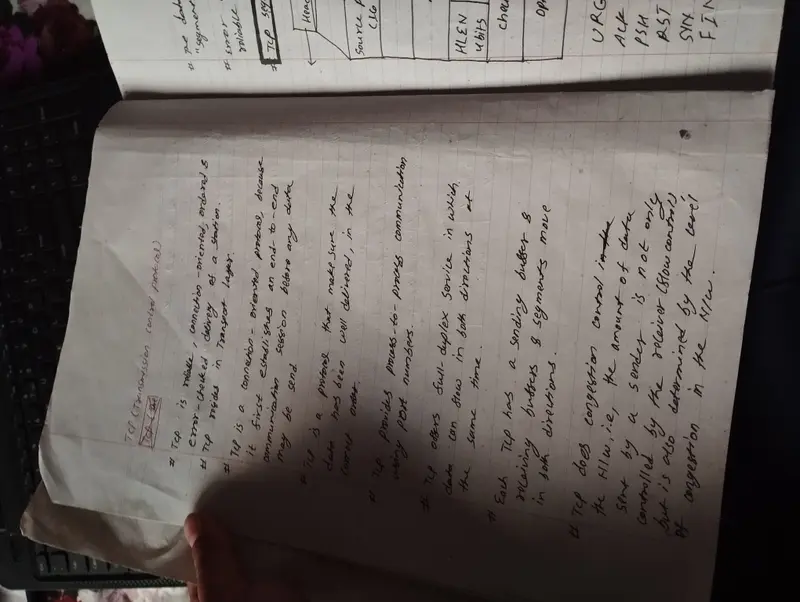 TCP (Transmission control protocol)
# TCP is reliable, connection-oriented, ordered &
error-checked delivery of a
# TCP resides in Transport layer.
# TCP is a connection-oriented protocol, because
it first establishes an end-to-end
communication session before any data
may be send
# TCP is a protocol that make sure the
data has been well delivered, in the
correct order.
# TCP provides process-to-process communication
using port numbers.
# TCP offers full-duplex service in which
data can flow in both directions at
the same time.
# Each TCP has a sending buffer &
receiving buffers & segments move
in both directions.
# TCP does congestion control in the
the N/w, i.e., the amount of data
sent by a sender is not only
controlled by the receiver (flow control)
but is also determined by the level
of congestion in the N/w.
# The data
"segment
# Error
reliable
# TCP
Source P
HLEN
4bits
URG
ACK
PSH
RST
SYN
FIN